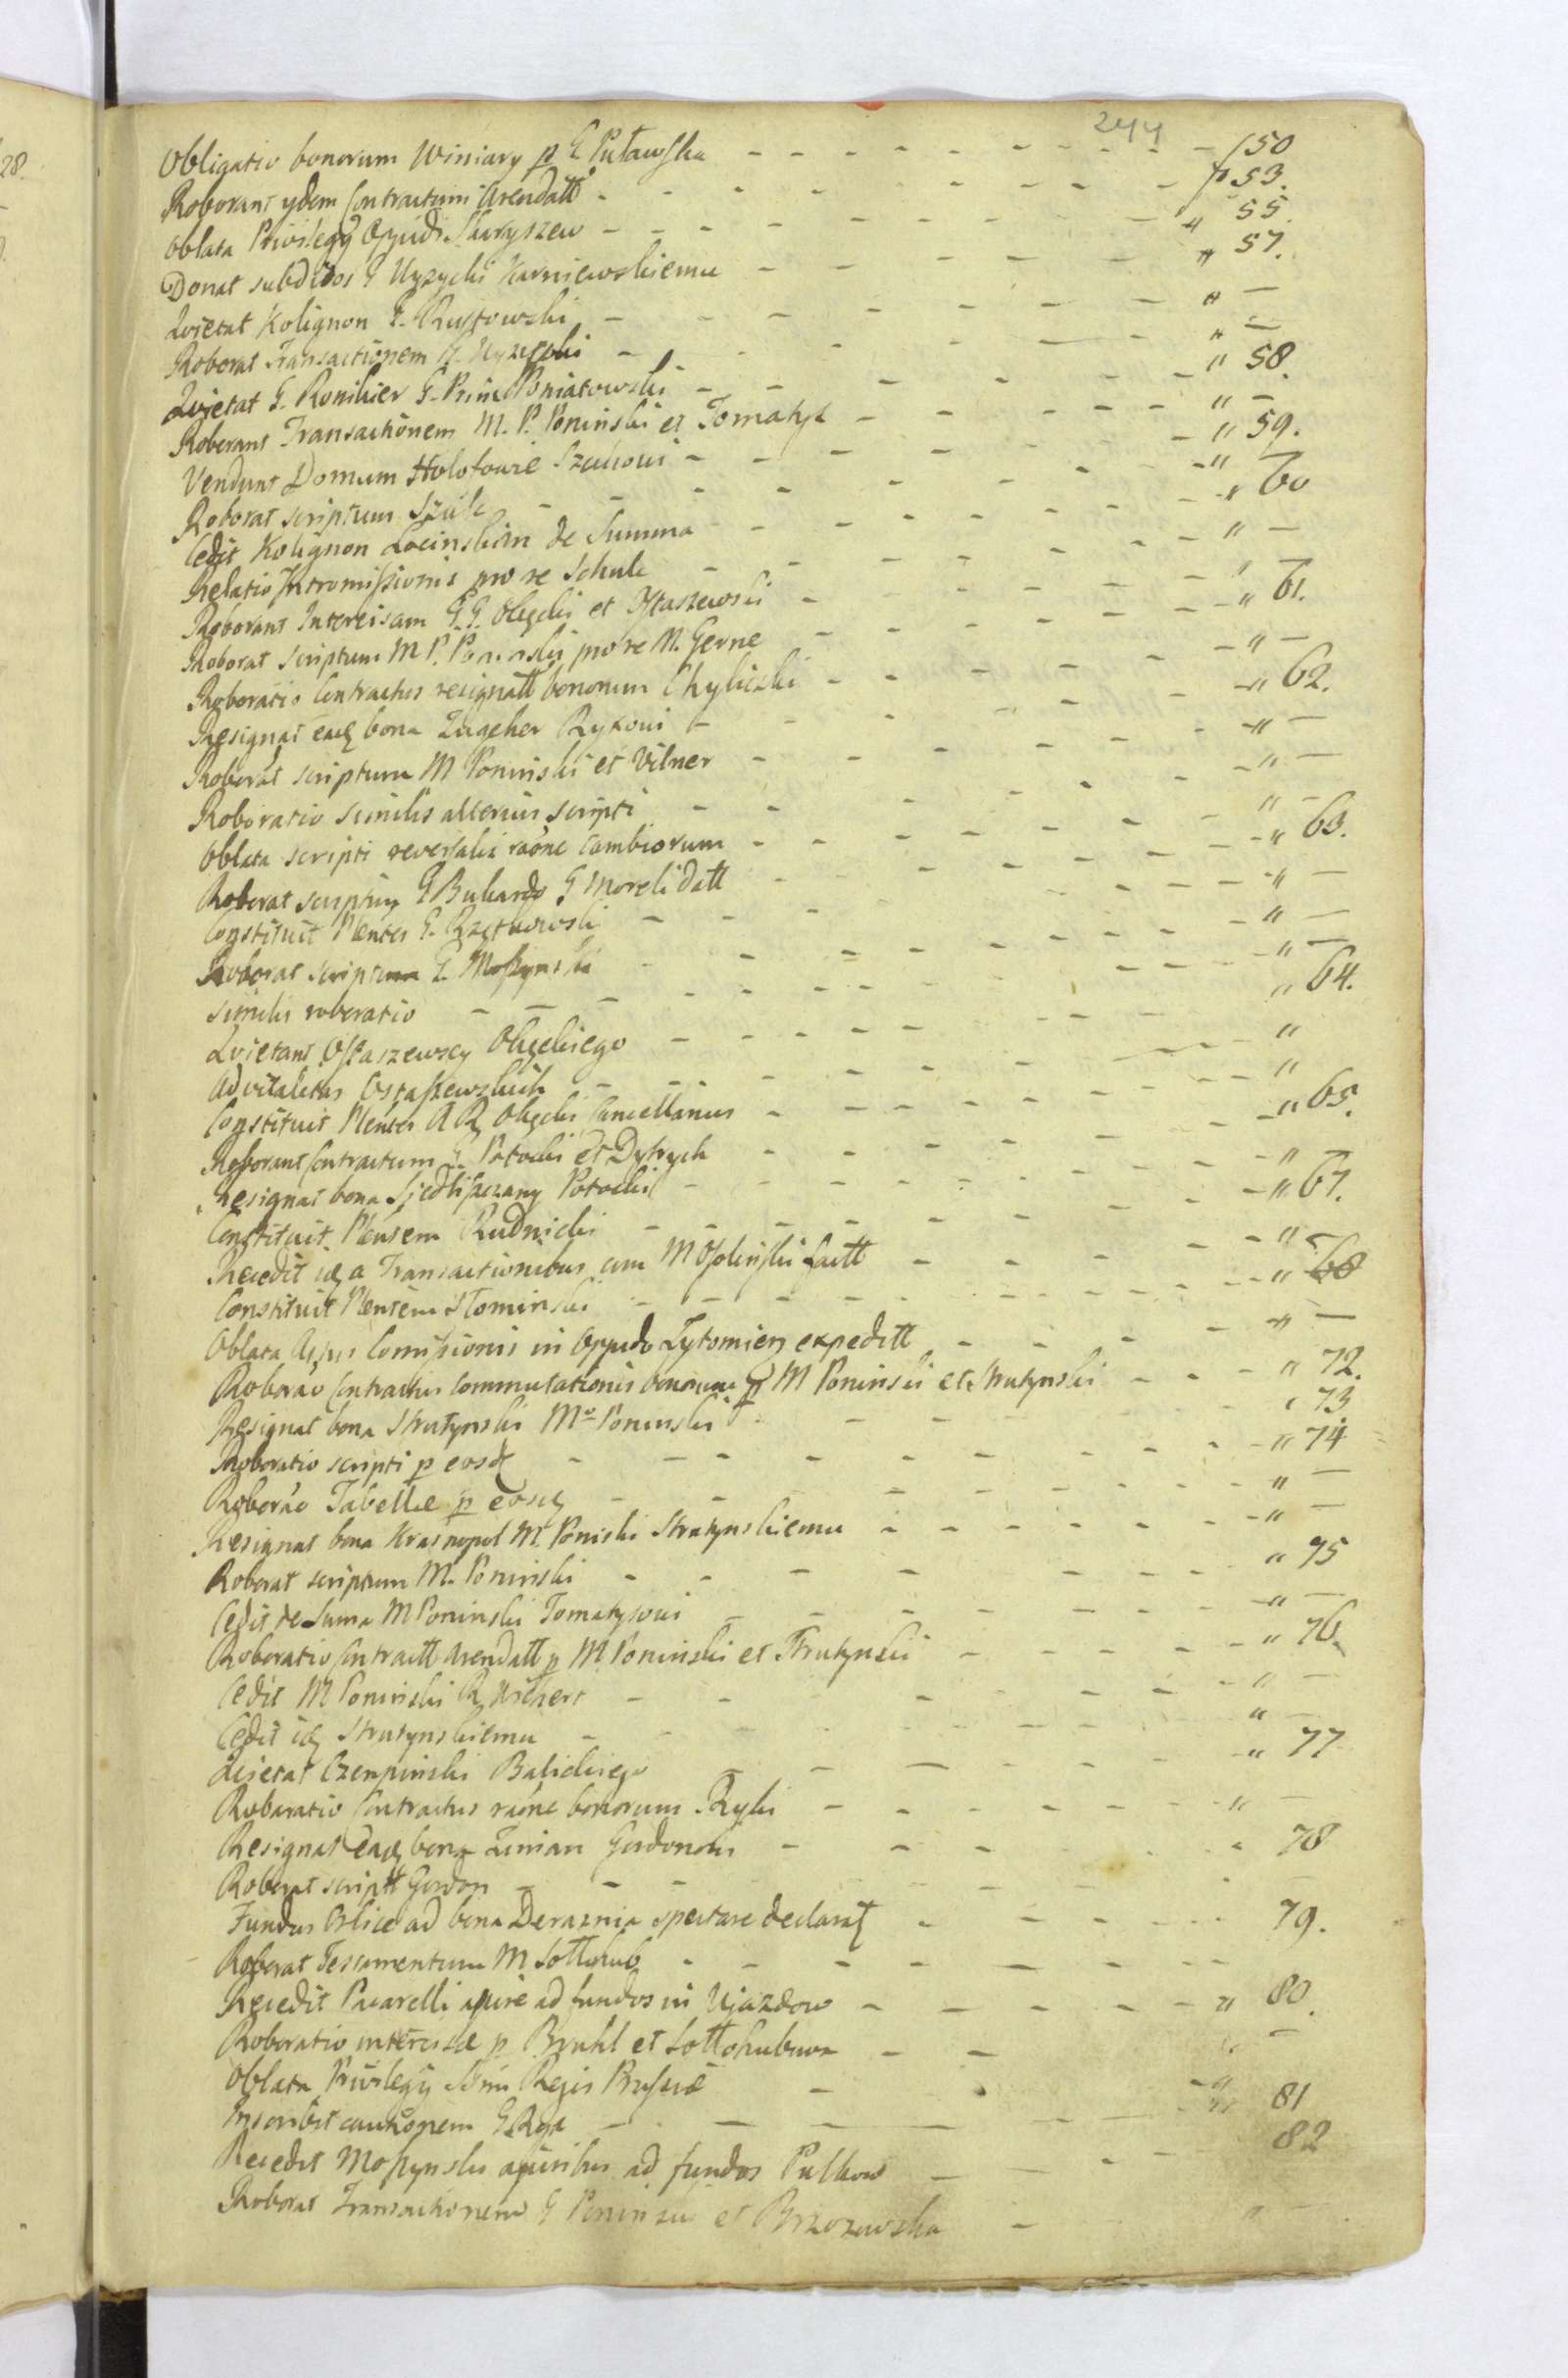 244
Obligatio bonorum Winiary p G Puławska - - - - - - - - - f 50
Roborant ydem Contractum Arendatt - - - - - - - f 53.
Oblata Privilegy Oppidi Skaryszew - - - - - - " 55.
Donat subditos G Uyzycki Karniewskiemu - - - - - " 57.
Quietat Kolignon G. Rustowski - - - - - - " —
Roborat Transactionem G. Uyzycki - - - - - " —
Quietat G. Ronikier G. Prin Poniatowski - - - - - " 58.
Roborant Transactionem M. P. Poninski et Tomatys - - - - " —
Vendunt Domum Holofowie Szulcowi - - - - - - " 59.
Roborat scriptum Szulc - - - - - - " —
Cedit Kolignon Locinskim de Summa - - - - - - " 60
Relatio Intromissionis pro re Schulc - - - - - - " —
Roborant Intercisam G.G. Olęcki et Ostaszewski - - - - - " —
Roborat scriptum M P. Poninski pro re N. Gerne - - - - - " 61.
Roboratio Contractus resignatt bonorum Chyliczki - - - - - " —
Resignat eaq bona Zugeher Ryxowi - - - - - " 62.
Roborat scriptum M Poninski et Vilner - - - - - " —
Roboratio similis alterius scripti - - - - - " —
Oblata scripti reversalis raōne cambiorum - - - - - " —
Roborat scriptum G Buhardo G Moreli datt - - - - - " 63.
Constituit Plentes G. Rzętkowski - - - - - " —
Roborat scriptum G. Moszynski - - - - - " —
Similis roboratio - - - - - - " —
Quietant Ostaszewscy Olęckiego - - - - - " 64.
Advitalitas Ostaszewskich - - - - - "
Constituit Plentes Olęcki Cancellarius - - - - - "
Roborant Contractum G. Potocki et Dytrych - - - - - " 65.
Resignat bona Siedliszczany Potocki - - - - - " —
Constituit Plensem Rudnicki - - - - - " 67.
Recedit idq a Transactionibus cum M Ossolinski factt - - - - " —
Constituit Plentem Słominski - - - - - " 68
Oblata Actus Comissionis in Oppido Zytomierz expeditt - - - - " —
Roborāo Contractus commutationis bonorum p M Poninski et Strutynski - - - " 72.
Resignat bona Strutynski Mo Poninski - - - - " 73
Roboratio scripti p eosd - - - - - " 74
Roborāo Tabelle p eosq - - - - - " —
Resignat bona Krasnopol M. Poniski Strutynskiemu - - - - - " —
Roborat scriptum M. Poninski - - - - - " 75
Cedit de Suma M Poninski Tomatysowi - - - - - " —
Roboratio Contractt Arendatt p M Poninski et Strutynski - - - - " 76.
Cedit M Poninski - - - - - " —
Cedit idq Strutynskiemu - - - - - "
Quietat Czempinski Balickiego - - - - - " 77
Roboratio Contractus raōne bonorum Ryki - - - - - " —
Resignat eaq bona Gordonowi - - - - - " 78
Roborat scriptt Gordon - - - - -
Fundus Ostice ad bona Deraznia spectare declarat - - - - - 79.
Roborat Testamentum M Sołłohub - - - - - -
Recedit Pacarelli a jure ad fundos in Ujazdow - - - - - " 80.
Roboratio intercisæ p Bruhl et Sołłohubowa - - " —
Oblata Privilegÿ Smi Regis Prussiæ - - - "
Inscribit cautionem G Ryx - - - - - " 81
Recedit Moszynski a juribus ad fundos Pulkow - - - 82
Roborat Transactionem G Poninski et Brzozowska - " —
28.